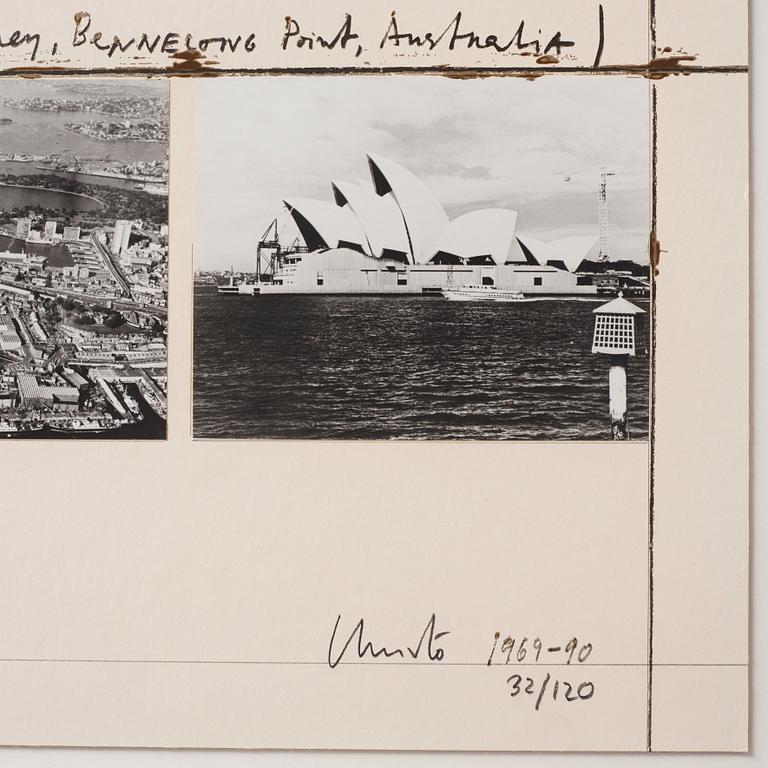 ney, Bennelong Point, Australia)
Christo 1969-90
32/120